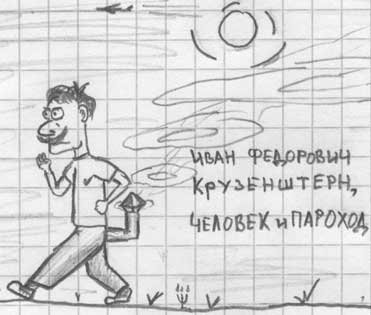 ИВАН ФЕДОРОВИЧ
КРУЗЕНШТЕРН,
ЧЕЛОВЕК и ПАРОХОД